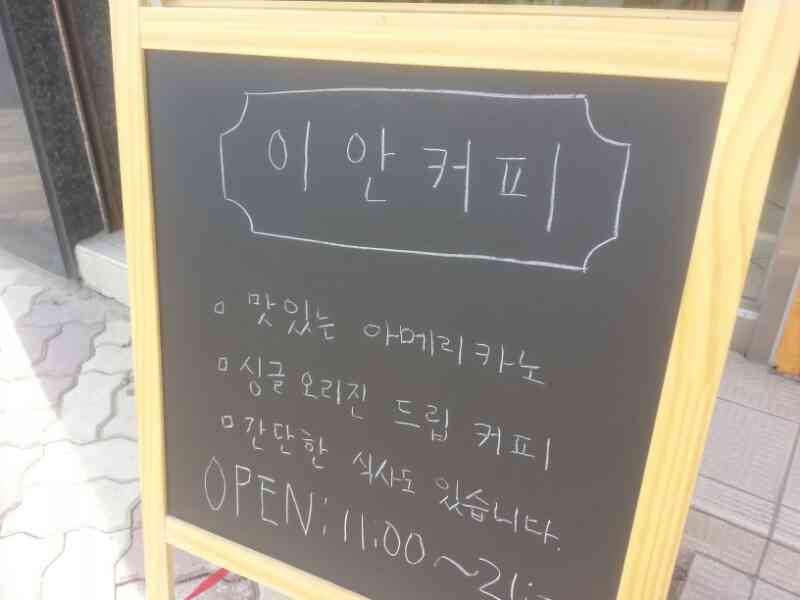 이안커피
▫ 맛있는 아메리카노
▫ 싱글 오리진 드립 커피
▫ 간단한 식사도 있습니다.
OPEN: 11:00 ~ 21: